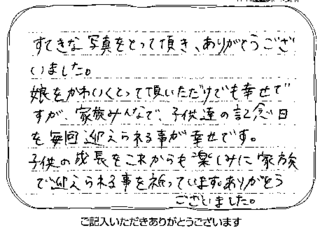 すてきな写真をとって頂き、ありがとうござ
いました。
娘をかわいくとって頂いただけでも幸せで
すが、家族みんなで、子供達の記念日
を毎回迎えられる事が幸せです。
子供の成長をこれからも楽しみに家族
で迎えられる事を祈っています。ありがとう
ございました。
ご記入いただきありがとうございます